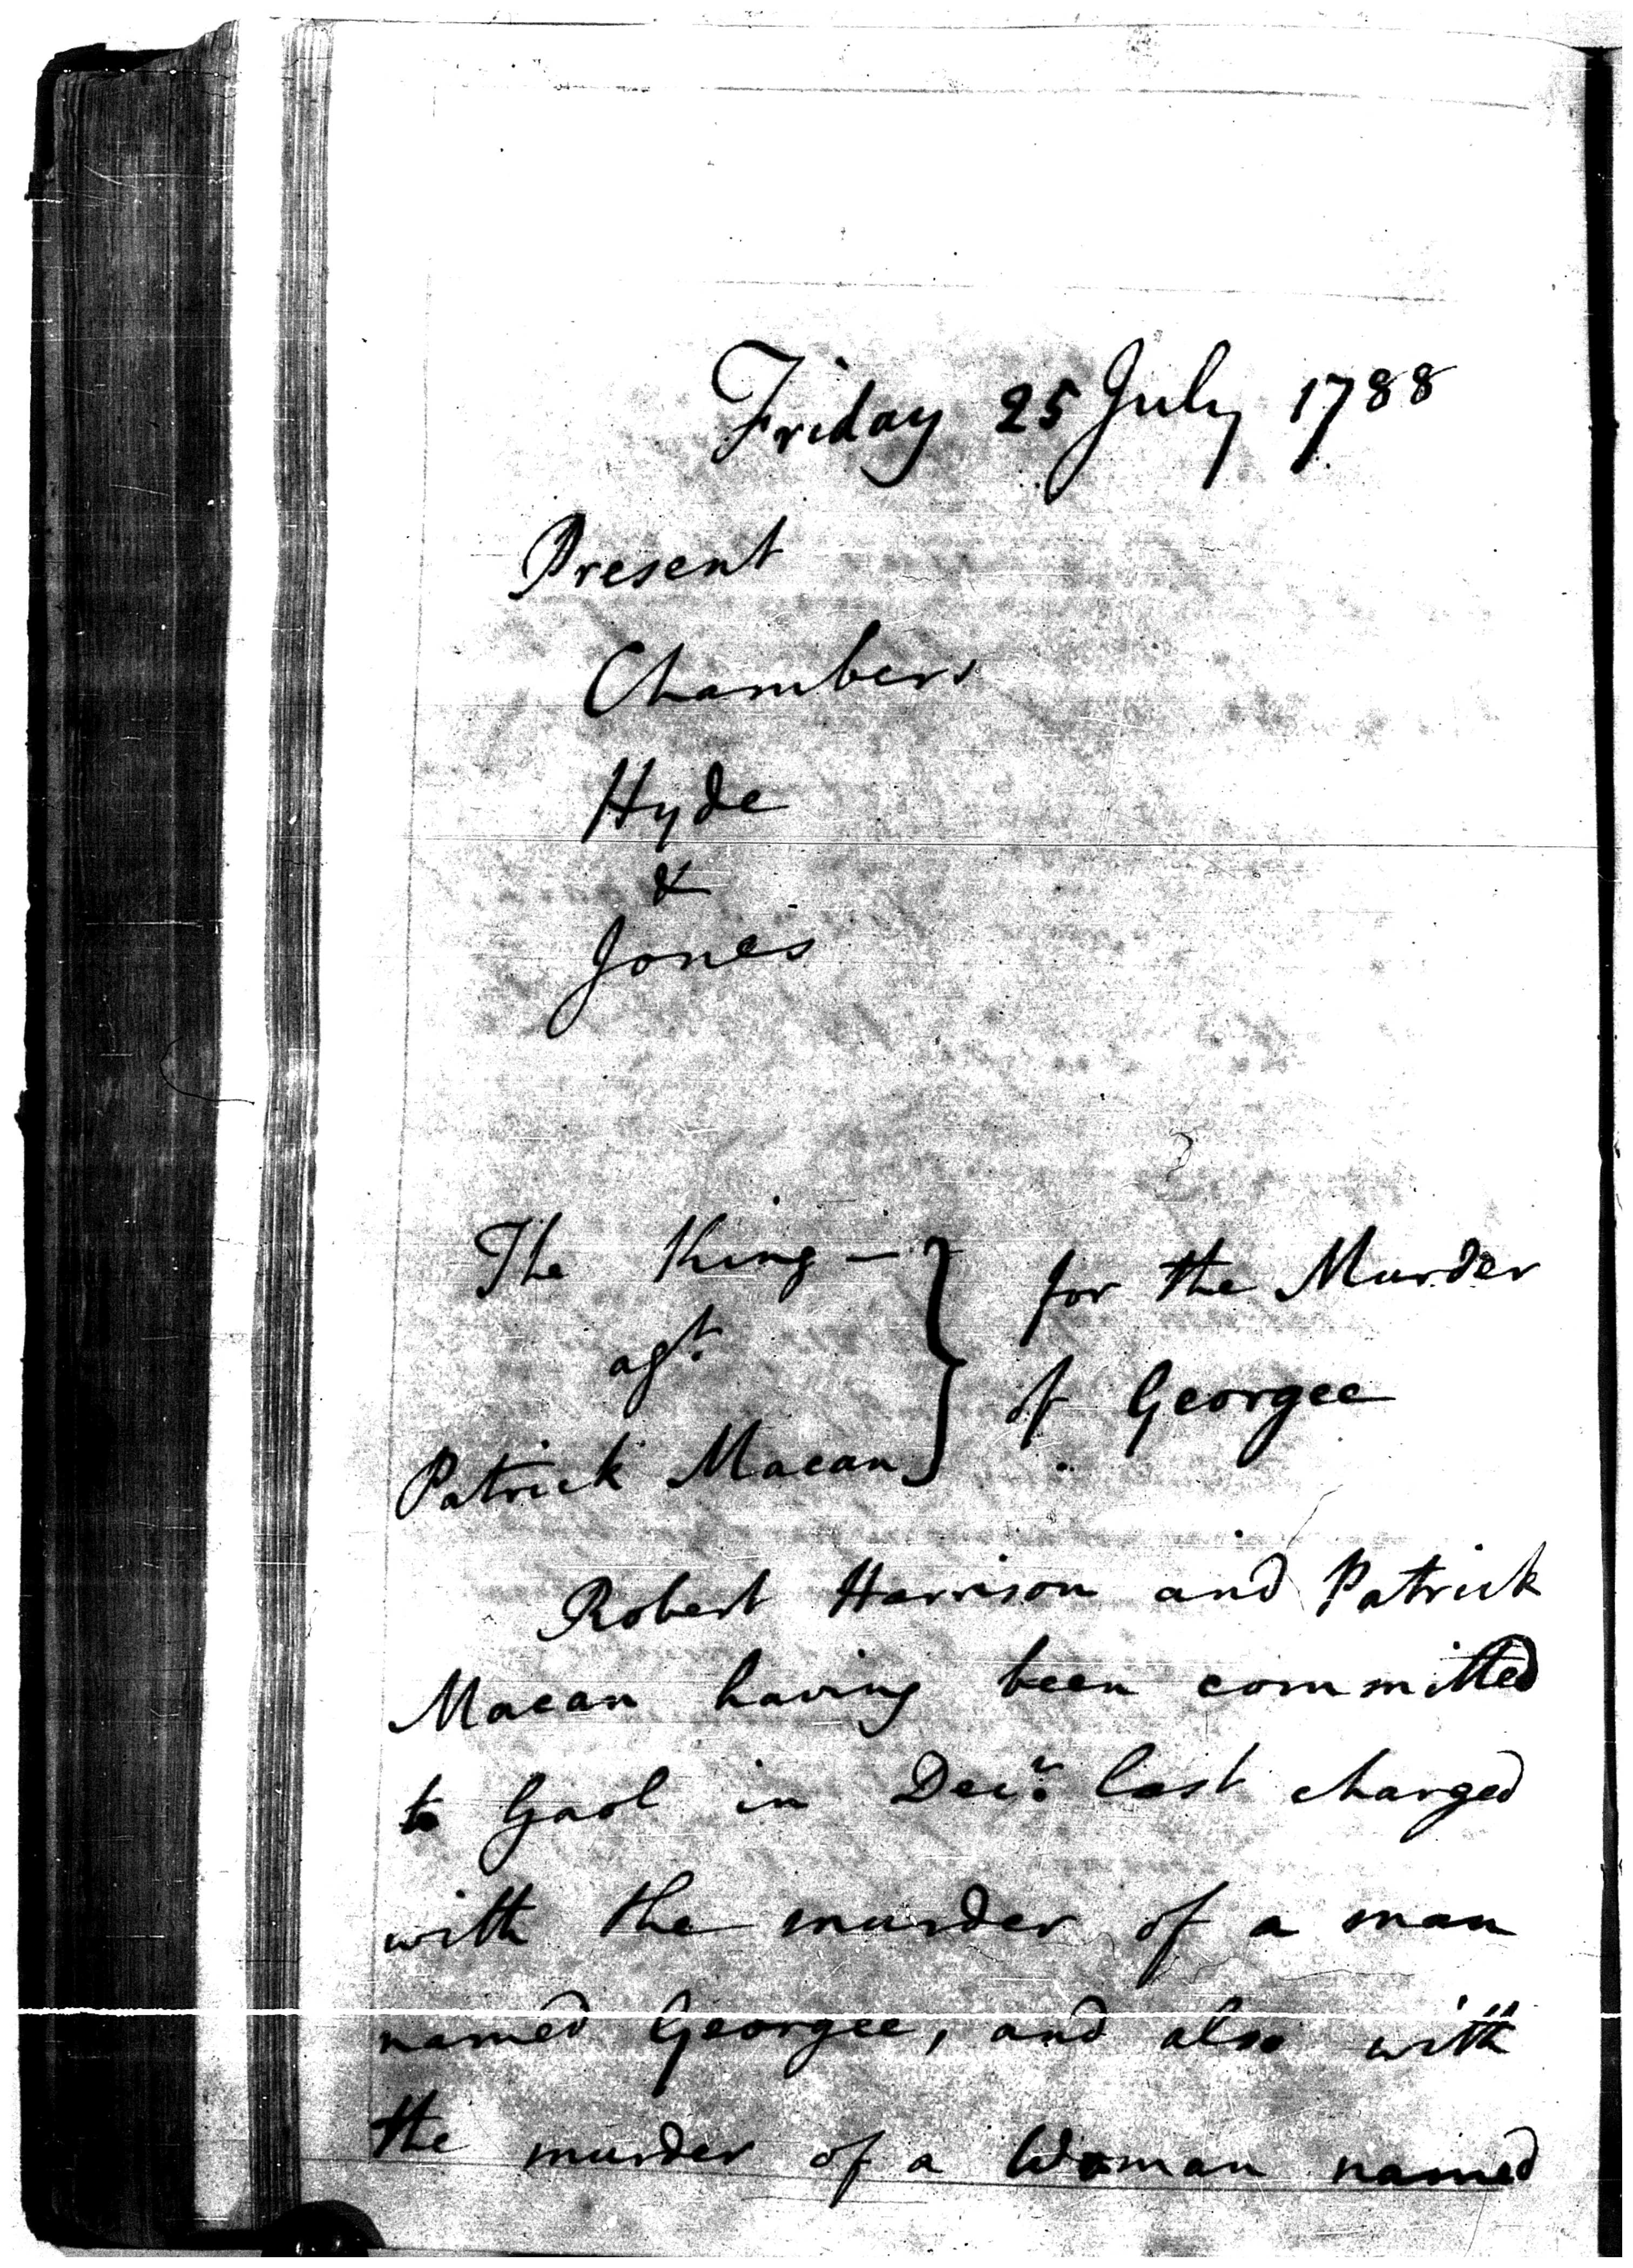 Friday 25 July 1788
Present
Chambers
Hyde
&
Jones
The King — } for the Murder
agt.
of Georgee
Patrick Macan
Robert Harrison and Patrick
Macan having been committed
to Gaol in Decr. last charged
with the murder of a man
named Georgee, and also with
the murder of a Woman named